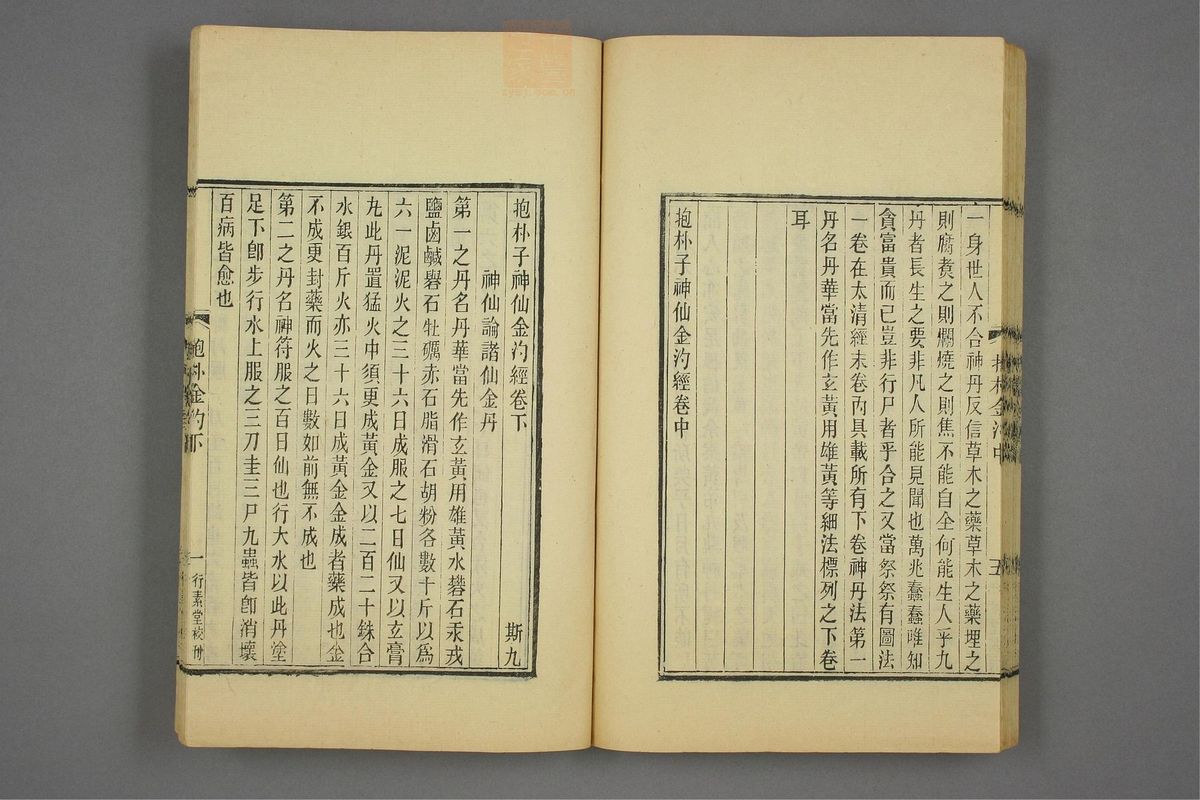 一身世人不合神丹反信草木之藥草木之藥埋之
則腐煑之則爛燒之則焦不能自全何能生人乎九
丹者長生之要非凡人所能見聞也萬兆蠢蠢唯知
貪富貴而已豈非行尸者乎合之又當祭祭有圖法
一卷在太清經末卷內具載所有下卷神丹法第一
丹名丹華當先作玄黃用雄黃等細法標列之下卷
耳
抱朴子神仙金汋經卷中
抱朴子神仙金汋經卷下
斯九
神仙論諸仙金丹
第一之丹名丹華當先作玄黃用雄黃水礬石汞戎
鹽鹵鹹礜石牡礪赤石脂滑石胡粉各數十斤以爲
六一泥泥火之三十六日成服之七日仙又以玄膏
丸此丹置猛火中須更成黃金又以二百二十銖合
水銀百斤火亦三十六日成黃金金成者藥成也金
不成更封藥而火之日數如前無不成也
第二之丹名神符服之百日仙也行大水以此丹塗
足下卽步行水上服之三刀圭三尸九蟲皆卽消壞
百病皆愈也
抱朴金汋下
一
行素堂校刊